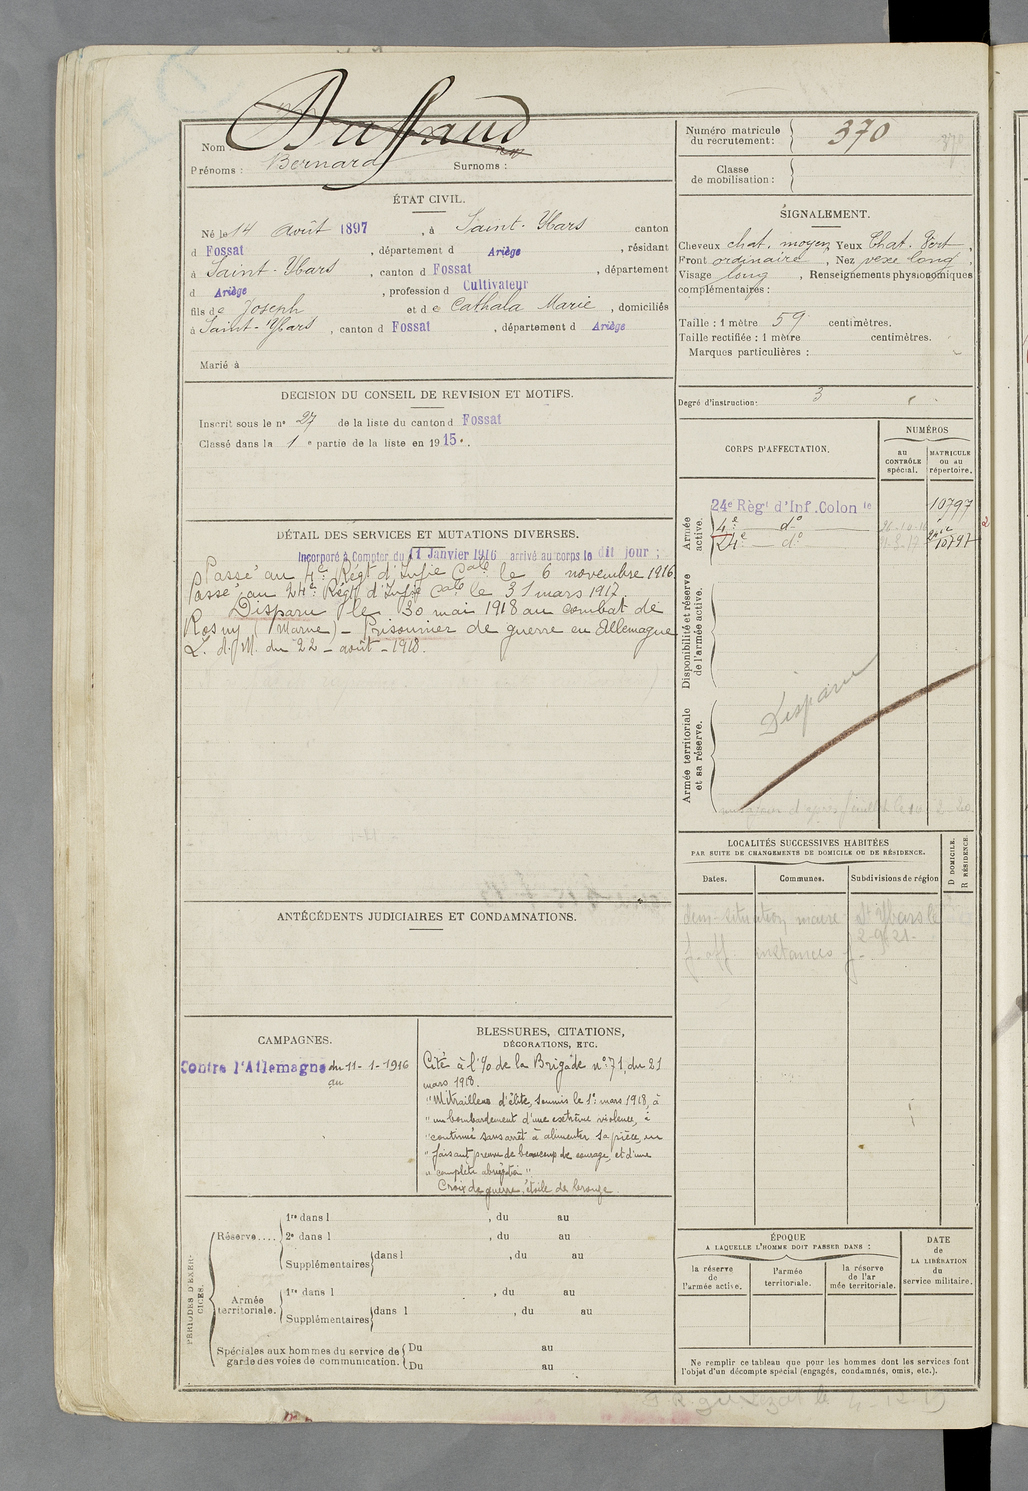 Nom Buffaud
Prénoms : Bernard Surnoms :
Numéro matricule du recrutement : 370
Classe de mobilisation :
ÉTAT CIVIL.
Né le 14 août 1897, à Saint-Ybars canton
d Fossat, département d Ariège, résidant
à Saint-Ybars, canton d Fossat, département
d Ariège, profession d Cultivateur
fils de Joseph et de Cathala Marie, domiciliés
à Saint-Ybars, canton d Fossat, département d Ariège
Marié à
DECISION DU CONSEIL DE REVISION ET MOTIFS.
Inscrit sous le n° 27 de la liste du canton d Fossat
Classé dans la 1e partie de la liste en 1915.
DÉTAIL DES SERVICES ET MUTATIONS DIVERSES.
Incorporé à Compter du 11 Janvier 1916 arrivé au corps le dit jour ;
Passé au 4e Régt d'Infie Cale le 6 novembre 1916
Passé au 24e Régt d'Infie Cale le 31 mars 1917
Disparu le 30 mai 1918 au combat de
Rosny (Marne) - Prisonnier de guerre en Allemagne
d. M. du 22 - août - 1918.
ANTÉCÉDENTS JUDICIAIRES ET CONDAMNATIONS.
CAMPAGNES.
Contre l'Allemagne du 11-1-1916
au
BLESSURES, CITATIONS,
DÉCORATIONS, ETC.
Cité à l'% de la Brigade n° 71, du 21
mars 1918.
"Mitrailleur d'élite, soumis le 1er mars 1918, à
"un bombardement d'une extrême violence, a
"continué sans arrêt à alimenter sa pièce, en
"faisant preuve de beaucoup de courage, et d'une
"complète abnégation"
Croix de guerre, étoile de bronze.
PÉRIODES D'EXERCICES.
Réserve....
1re dans l , du au
2e dans l , du au
Supplémentaires dans l , du au
Armée territoriale.
1re dans l , du au
Supplémentaires dans l , du au
Spéciales aux hommes du service de garde des voies de communication.
Du au
Du au
SIGNALEMENT.
Cheveux chat. moyen Yeux Chat. Vert,
Front ordinaire, Nez vexe long,
Visage long, Renseignements physionomiques
complémentaires :
Taille : 1 mètre 59 centimètres.
Taille rectifiée : 1 mètre centimètres.
Marques particulières :
Degré d'instruction: 3
CORPS D'AFFECTATION.
NUMÉROS
AU CONTRÔLE spécial.
MATRICULE ou au répertoire.
Armée active.
24e Règt d'Inf. Colon le 10797
4e do
24e do 10797
Disponibilité et réserve de l'armée active.
Disparu
Armée territoriale et sa réserve.
LOCALITÉS SUCCESSIVES HABITÉES
PAR SUITE DE CHANGEMENTS DE DOMICILE OU DE RÉSIDENCE.
Dates. Communes. Subdivisions de région
D DOMICILE.
R RÉSIDENCE.
situation maire St Ybars le
2-9-21-
instances
ÉPOQUE
A LAQUELLE L'HOMME DOIT PASSER DANS :
la réserve de l'armée active.
l'armée territoriale.
la réserve de l'ar mée territoriale.
DATE de LA LIBÉRATION du service militaire.
Ne remplir ce tableau que pour les hommes dont les services font
l'objet d'un décompte spécial (engagés, condamnés, omis, etc.).